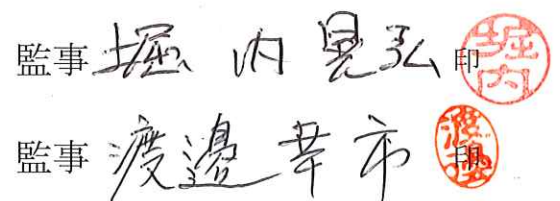 監事 堀内晃弘 印 堀内
監事 渡邉幸市 印 渡邊